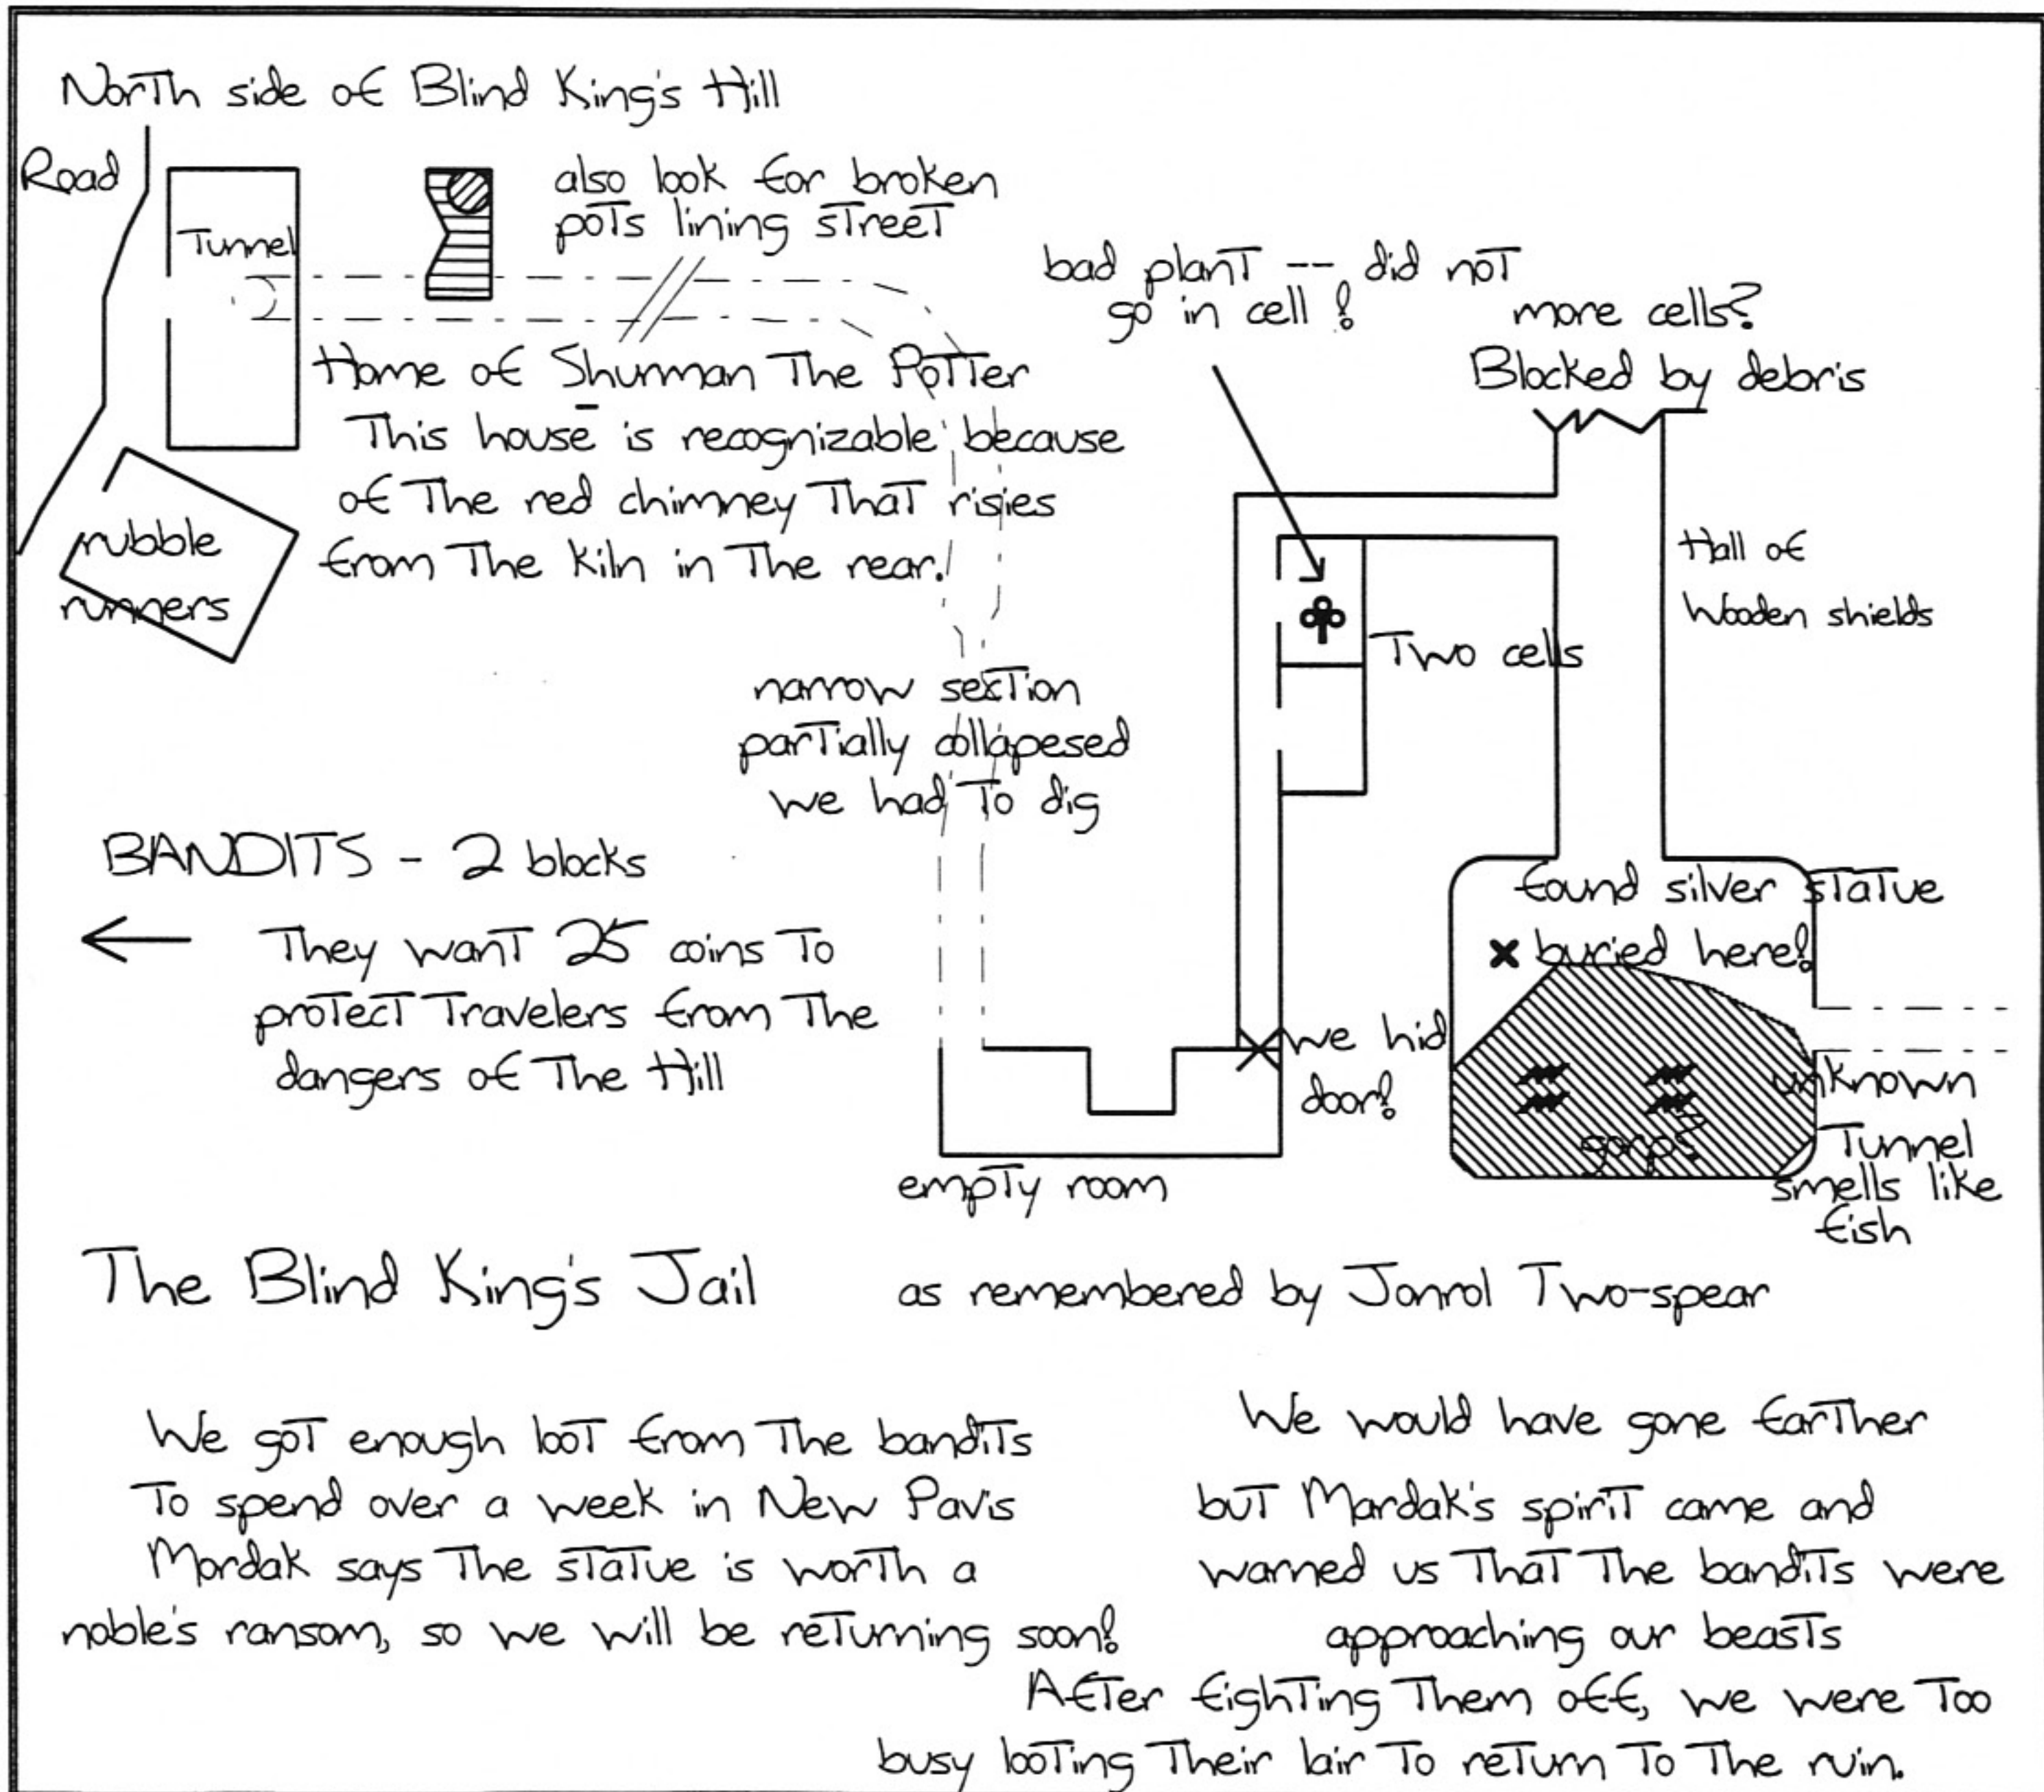 North side of Blind King's Hill
Road
Tunnel
also look for broken
pots lining street
bad plant -- did not
go in cell!
more cells?
Blocked by debris
Home of Shurman The Potter
This house is recognizable because
of The red chimney That risies
from The kiln in The rear.
rubble
runners
Hall of
Wooden shields
Two cells
narrow section
partially collapesed
we had To dig
BANDITS - 2 blocks
They want 25 coins To
protect Travelers from The
dangers of The Hill
found silver statue
x buried here!
we hid
door!
gorp?
unknown
Tunnel
smells like
fish
empty room
The Blind King's Jail
as remembered by Jonrol Two-spear
We got enough loot from The bandits
To spend over a week in New Pavis
Mordak says The statue is worth a
noble's ransom, so we will be returning soon!
We would have gone farther
but Mardak's spirit came and
warned us That The bandits were
approaching our beasts
After fighting Them off, we were Too
busy looting Their lair To return To The ruin.